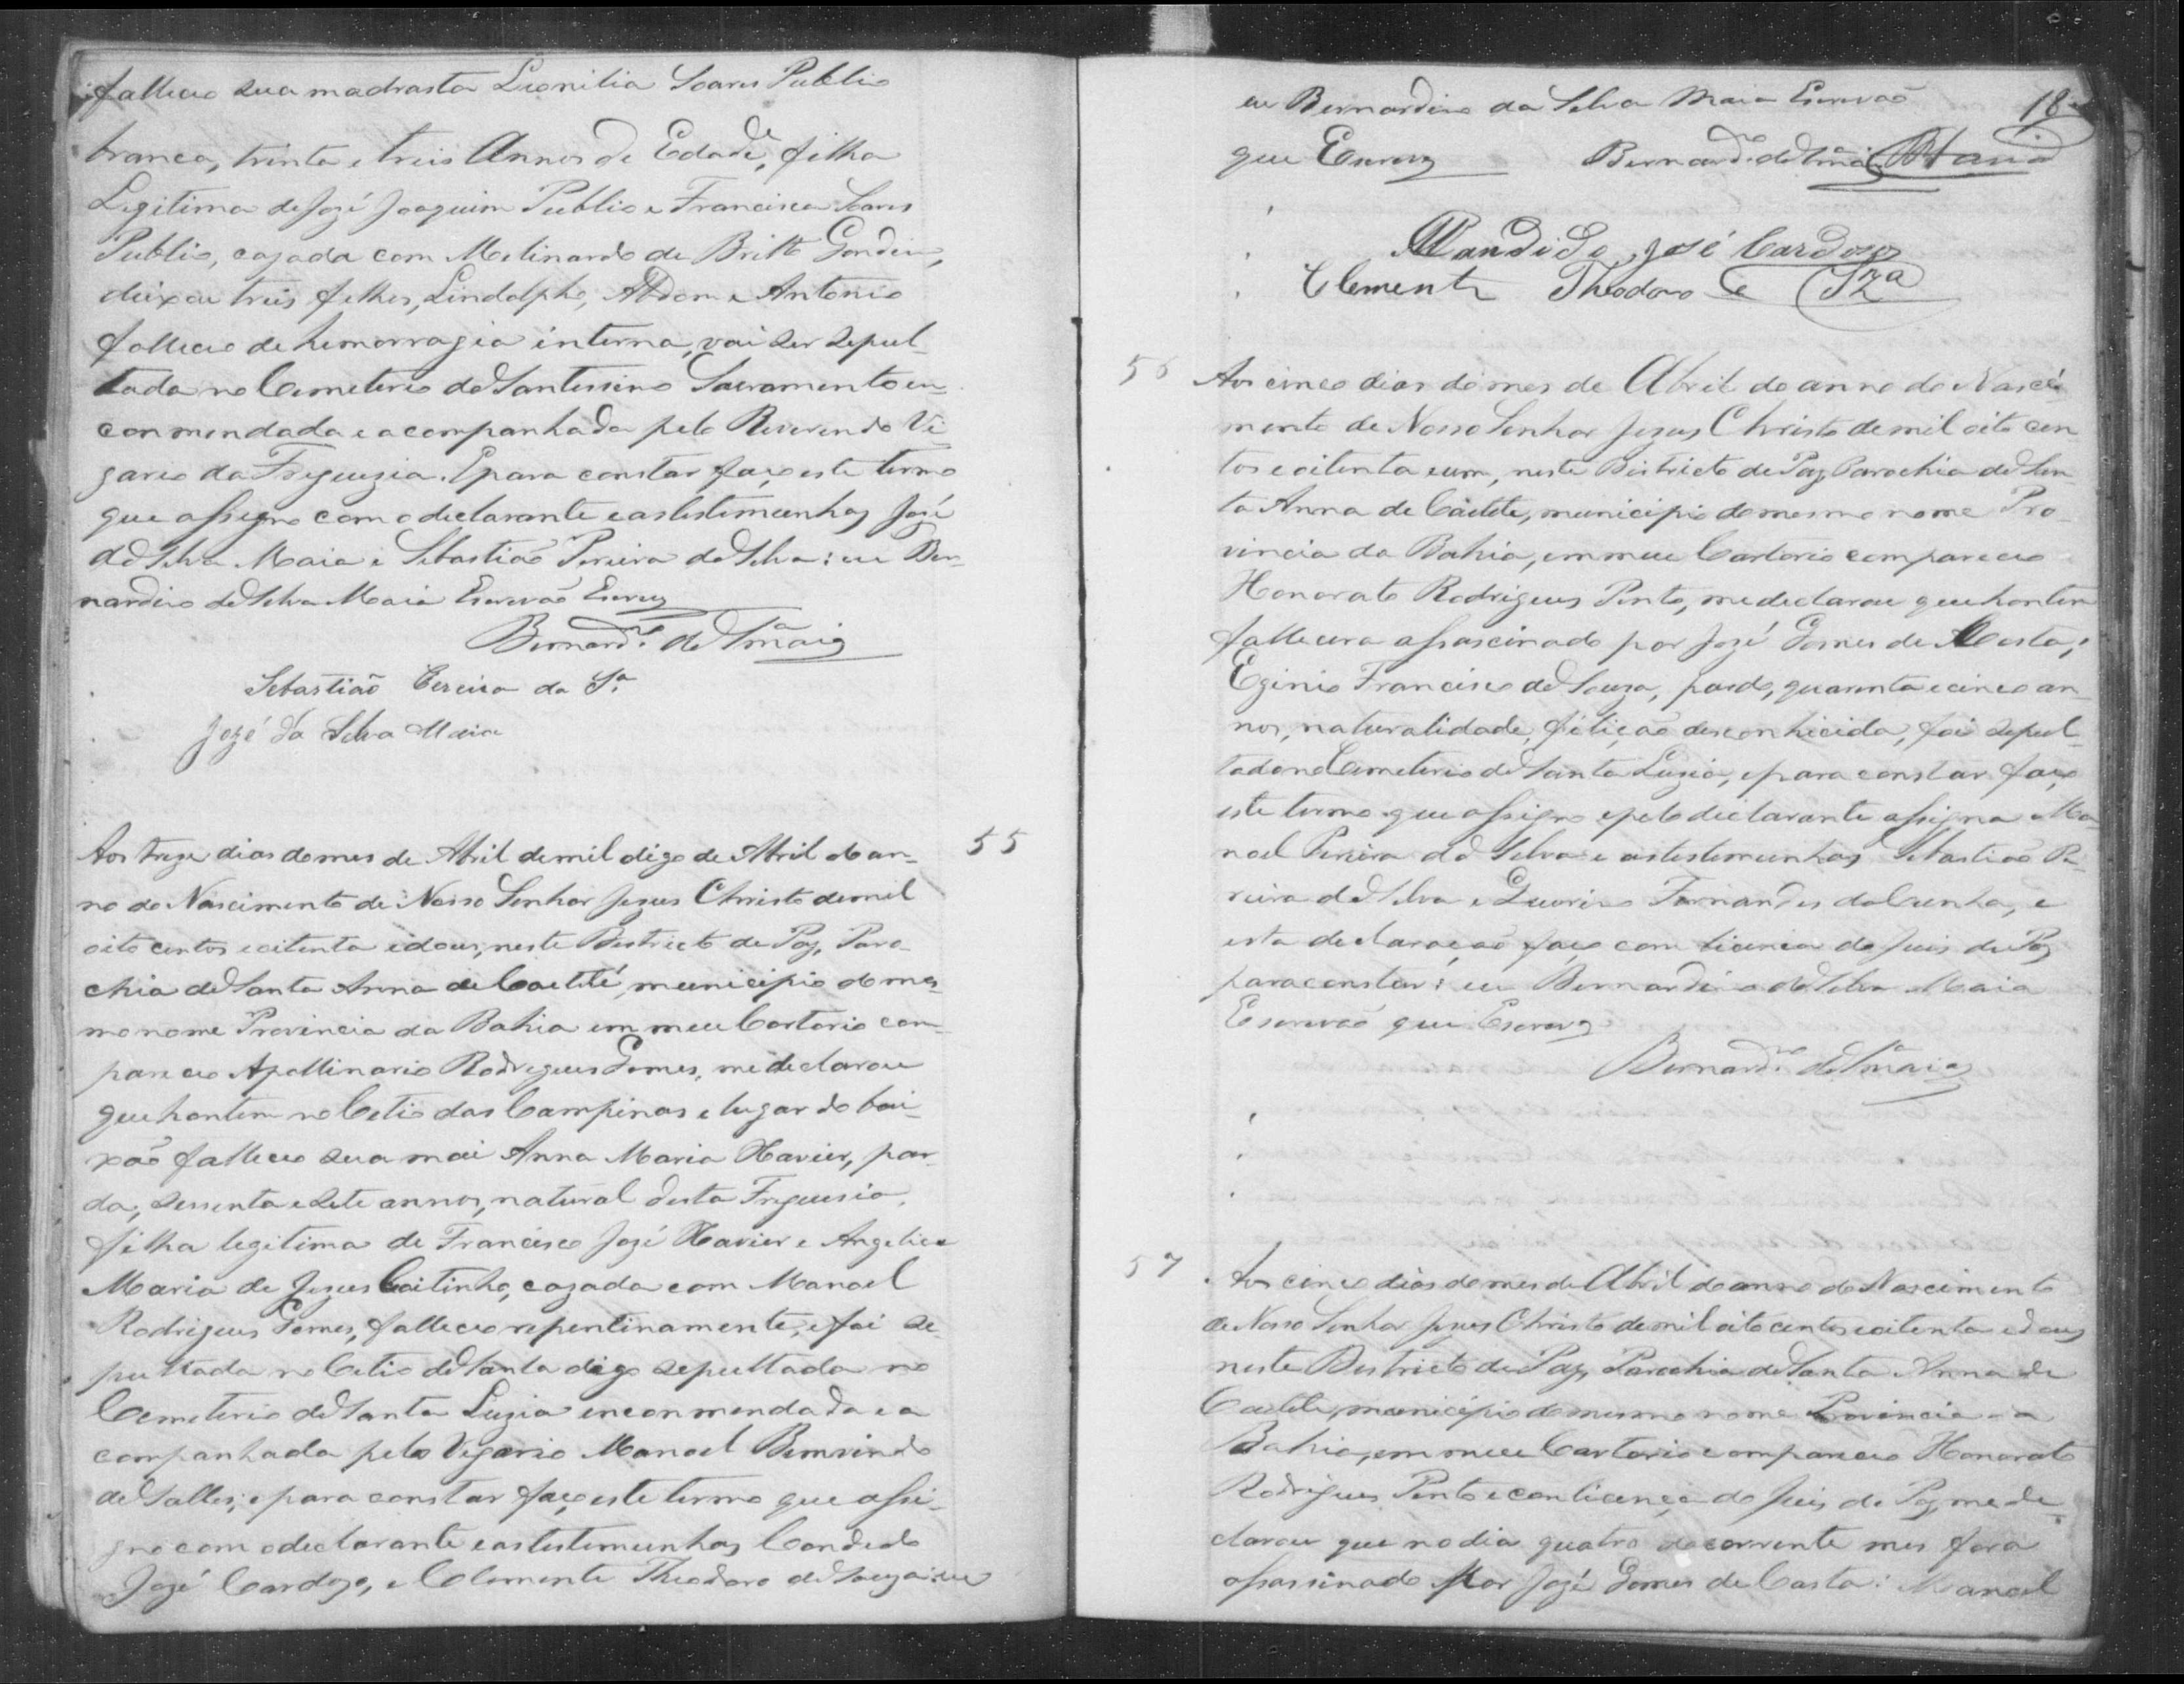 falleceo sua madrasta Leonilia Soares Publio
branca, trinta e treis Annos de Edade, filha
Legitima de José Joaquim Publio e Francisca Soares
Publio, cazada com Melinardo de Britto Gondin,
deixou treis filhos, Lindolpho, Abdom e Antonio
falleceo de hemorragia interna, vai ser sepul-
tada no Cemeterio do Santissimo Sacramento en-
conmendada e acompanhada pelo Reverendo Vi-
gario da Freguezia. E para constar faço este termo
que assigno com o declarante e as testemunhas José
da Silva Maia e Sebastião Pereira da Silva: eu Ber-
nardino da Silva Maia Escrevão Escrevy
Bernard.no da S.a Maia
Sebastião Pereira da S.a
José da Silva Maia
55
Aos treze dias do mes de Abril de mil digo de Abril do an-
no do Nascimento de Nosso Senhor Jezus Christo de mil
oito centos e oitenta e dous, neste Districto de Paz, Paro-
chia de Santa Anna de Caetité, municipio do mes-
mo nome Provincia da Bahia em meu Cartorio com-
pareceo Apollinario Rodrigues Gomes, me declarou
que hontem no Citio das Campinas e lugar do bai-
xaõ falleceo sua mai Anna Maria Xavier, par-
da, sessenta e sete annos, natural desta Freguesia,
filha legitima de Francisco José Xavier e Angelica
Maria de Jezus Coitinho, cazada com Manoel
Rodrigues Gomes, falleceo repentinamente, e foi se-
pultada no Citio de Santa digo sepultada no
Cemeterio de Santa Luzia enconmendada e a
companhada pelo Vigario Manoel Bemvindo
de Salles; e para constar faço este termo que assi-
gno com o declarante e as testemunhas Candido
José Cardozo, e Clemente Theodoro de Souza: eu
18
eu Bernardino da Silva Maia Escrevaõ
que Escrevy Bernard.no da S.a Maia
Candido José Cardozo
Clemente Theodoro de Sza
56
Aos cinco dias do mes de Abril do anno do Nasci
mento de Nosso Senhor Jezus Christo de mil oito cen
tos e oitenta e um, neste Districto de Paz, Parochia de San-
ta Anna de Caitete, municipio do mesmo nome Pro-
vincia da Bahia, em meu Cartorio compareceo
Honorato Rodrigues Pinto, me declarou que hontem
fallecera assascinado por José Gomes da Costa,
Eginio Francisco de Souza, pardo, quarenta e cinco an-
nos, naturalidade, filiçaõ desconhicida, foi sepul-
tado no Cemeterio de Santa Luzia, e para constar faço
este termo que assigno e pelo declarante assigna Ma-
noel Pereira da Silva e as testemunhas Sebastiaõ Pe-
reira da Silva e Fernandes da Cunha, e
esta declaraçaõ faço com licença do Juis de Paz
para constar: eu Bernardino da Silva Maia
Escrevaõ que Escrevy
Bernard.no da S.a Maia
57
Aos cinco dias do mes de Abril do anno do Nascimento
de Nosso Senhor Jezus Christo de mil oito centos e oitenta e dous
neste Districto de Paz, Parochia de Santa Anna de
Caetete, municipio do mesmo nome Provincia da
Bahia, em meu Cartorio compareceo Honorato
Rodrigues Pinto e con licença do Juis de Paz, me de-
clarou que no dia quatro do corrente mes fora
assassinado por José Gomes da Costa: Manoel